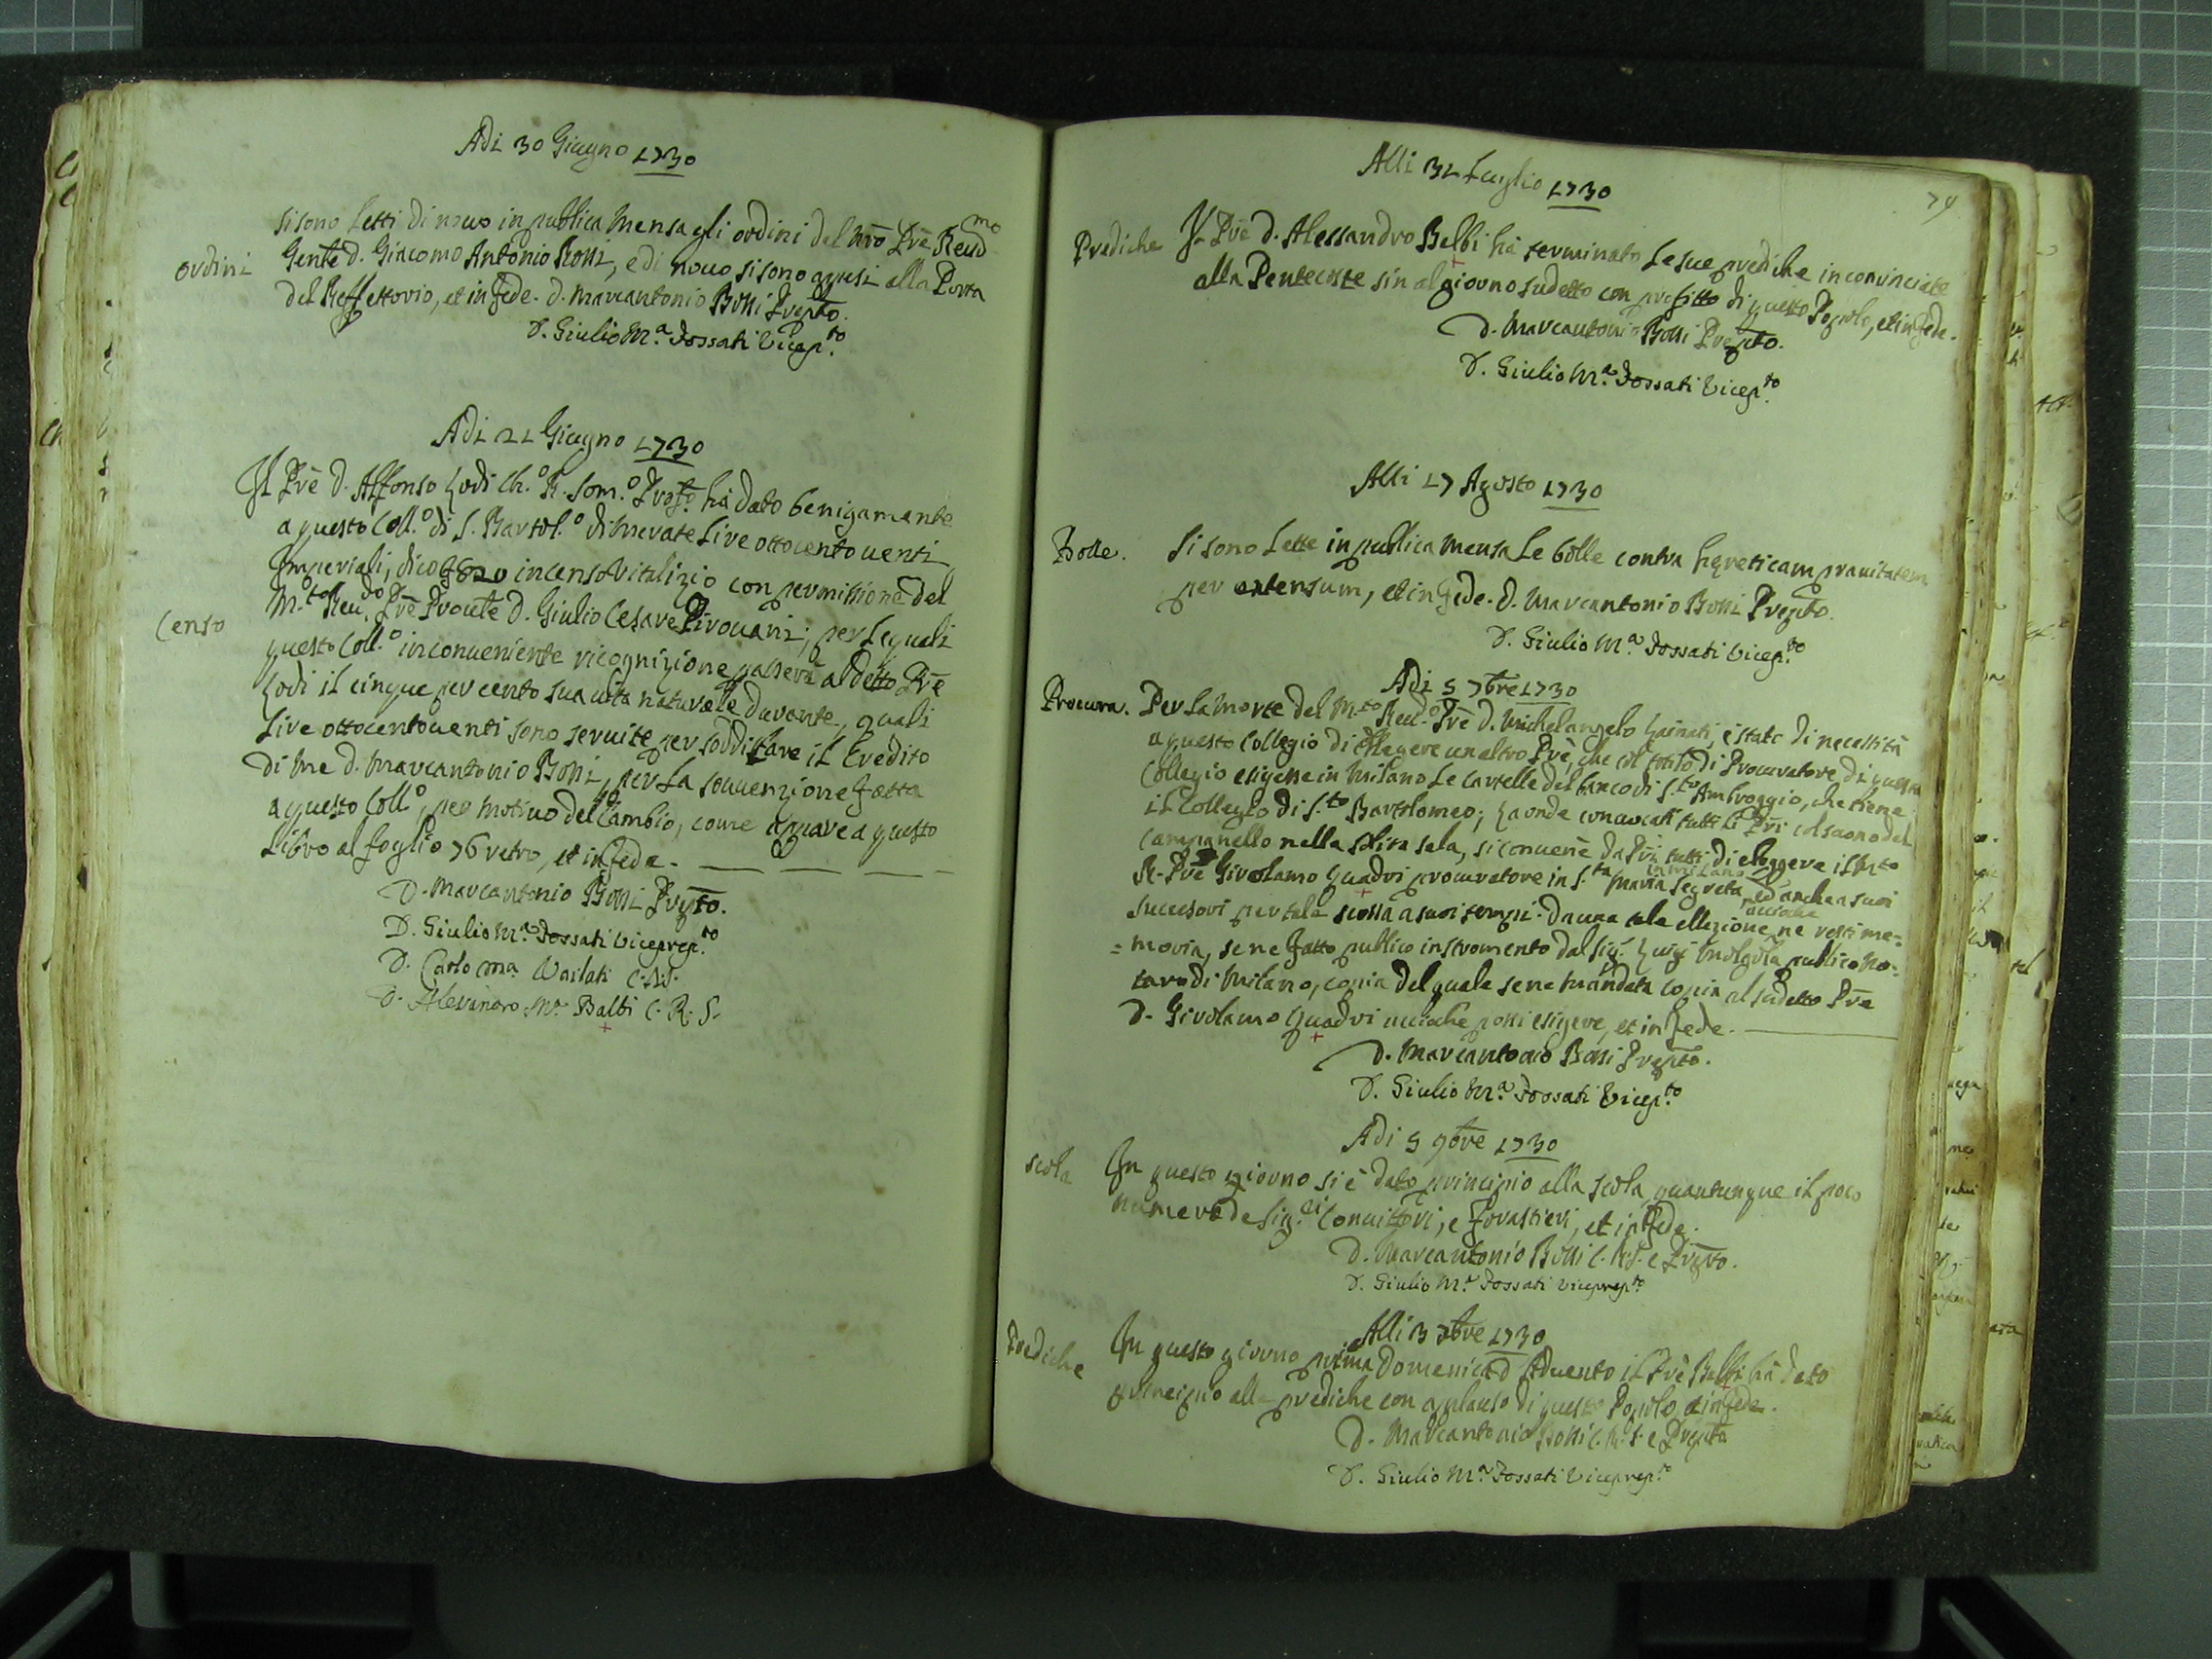 Adi 30 Giugno 1730
Si sono letti di nouo in publica mensa gli ordini del nrō Prē Reud.mo
ordini
Genle D. Giacomo Antonio Rossi, e di nouo si sono apesi alla Porta
del Reffettorio, et in fede. D. Marcantonio Bossi Prepto.
D. Giulio M.a Fossati Vicep.to
Adi 21 Giugno 1730
Il Prē D. Alfonso Lodi Ch.o R. Som.o Prof.o hà dato benigamante
a questo Coll.o di S. Bartol.o di Merate Lire ottocento uenti
Imperiali, dico £820 in censo Vitalizio con permissione del
M.to Reu.do Prē Proule D. Giulio Cesare Pirouani; per le quali
Censo
questo Coll.o in conueniente ricognizione passerà al detto Prē
Lodi il cinque per cento sua uita naturale durante, quali
Lire ottocentouenti sono seruite per soddisfare il Credito
di me D. Marcantonio Bossi, per la souuenzione fatta
a questo Coll.o, per motiuo del Cambio, come appare a questo
Libro al foglio 76 retro, et in fede.
D. Marcantonio Bossi Prepto.
D. Giulio M.a Fossati Viceprep.to
D. Carlo Ma. Vailati C.R.S.
D. Alesandro Ma. Balbi C. R. S.
79
Alli 31 Luglio 1730
Prediche
Il Prē D. Alessandro Balbi hà terminato le sue prediche incominciate
alla Pentecoste sin al giorno sudetto con profitto di questo Popolo, et in fede.
D. Marcantonio Bossi Prepto.
D. Giulio M.a Fossati Vicep.to
Alli 17 Agosto 1730
Bolle.
Si sono lette in publica mensa le bolle contra hęreticam prauitatem
per extensum, et in fede. D. Marcantonio Bossi Prepto.
D. Giulio M.a Fossati Vicep.to
Adi 5 7bre 1730
Procura.
Per la morte del M.to Reu.do Prē D. Michelangelo è stato di necessità
a questo Collegio di ellegere un altro Prē, che col titolo di Procuratore di questo
Collegio esigesse in Milano le cartelle del banco di S.to Ambroggio, che tiene
il Collegio di S.to Bartolomeo; Laonde conuocati tutti li Pri col suono del
Campanello nella solita sala, si conuenē da Pri tutti di eleggere il Mto
R. Prē Girolamo Quadri procuratore in S.ta Maria Segreta in Milano, ed anche a suoi
Sucessori per tale scossa a suoi tempi. Da una tale ellezione acioche ne resti me=
=moria, se ne fatto publico instromento dal Sig. Luigi publico No=
taro di Milano, copia del quale se ne mandata copia al sudetto Prē
D. Girolamo Quadri acciochè possi esigere, et in fede.
D. Marcantonio Bossi Prepto.
D. Giulio M.a Fossati Vicep.to
Adi 5 9bre 1730
scola
In questo giorno si è dato principio alla scola, quantunque il poco
numero de Sig.ri Conuittori, e forastieri, et in fede.
D. Marcantonio Bossi C.R.S. e Prepto.
D. Giulio M.a Fossati Viceprep.to
Alli 3 Xbre 1730
Prediche
In questo giorno prima Domenica d'Aduento il Prē Balbi hà dato
principio alle prediche con aplauso di questo Popolo et in fede.
D. Marcantonio Bossi C.R.S. e Prepto
D. Giulio M.a Fossati Viceprep.to